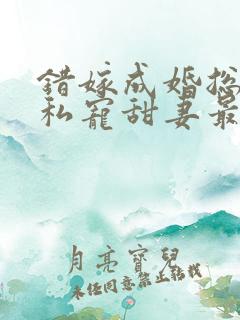 錯嫁成婚總
私寵甜妻最
月亮寶兒
未經同意禁止轉載